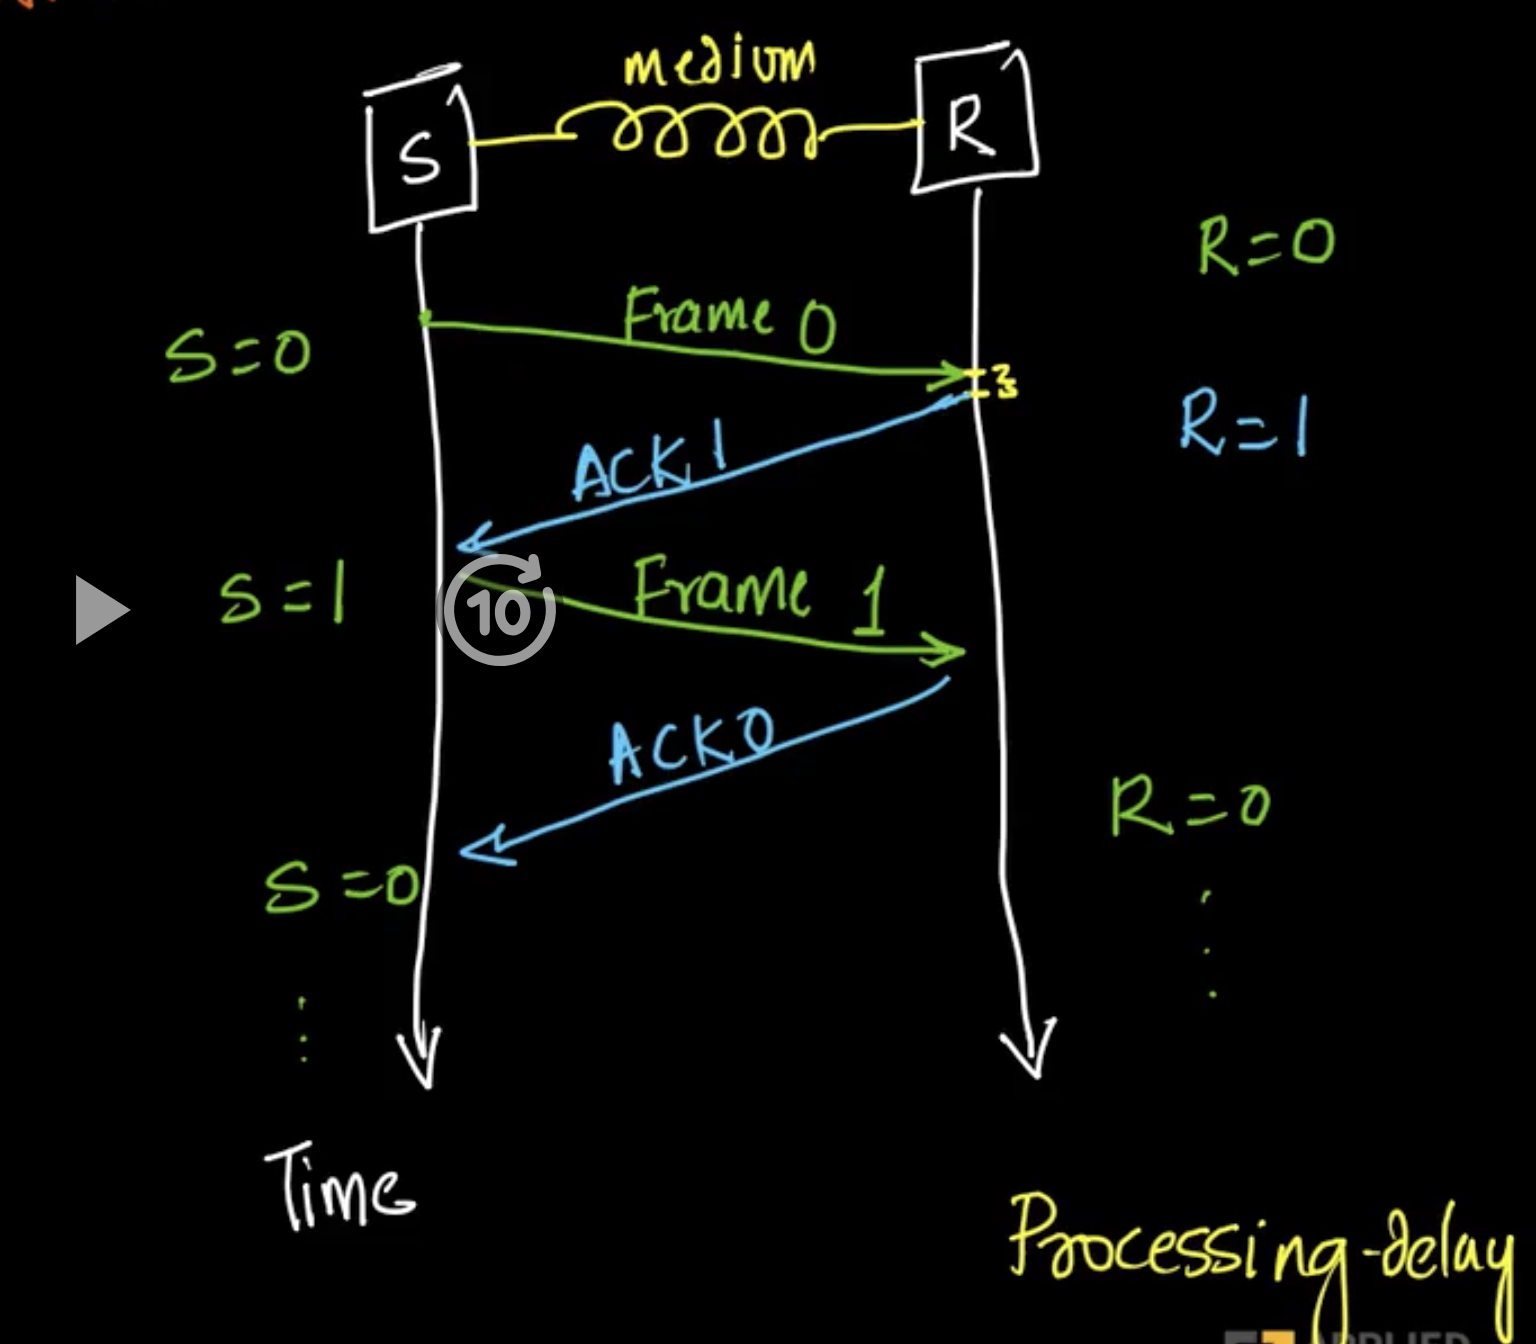 medium
S
R
R=0
Frame 0
S=0
R=1
ACK 1
S=1
10
Frame 1
ACK 0
R=0
S=0
Time
Processing-delay
APPLIED